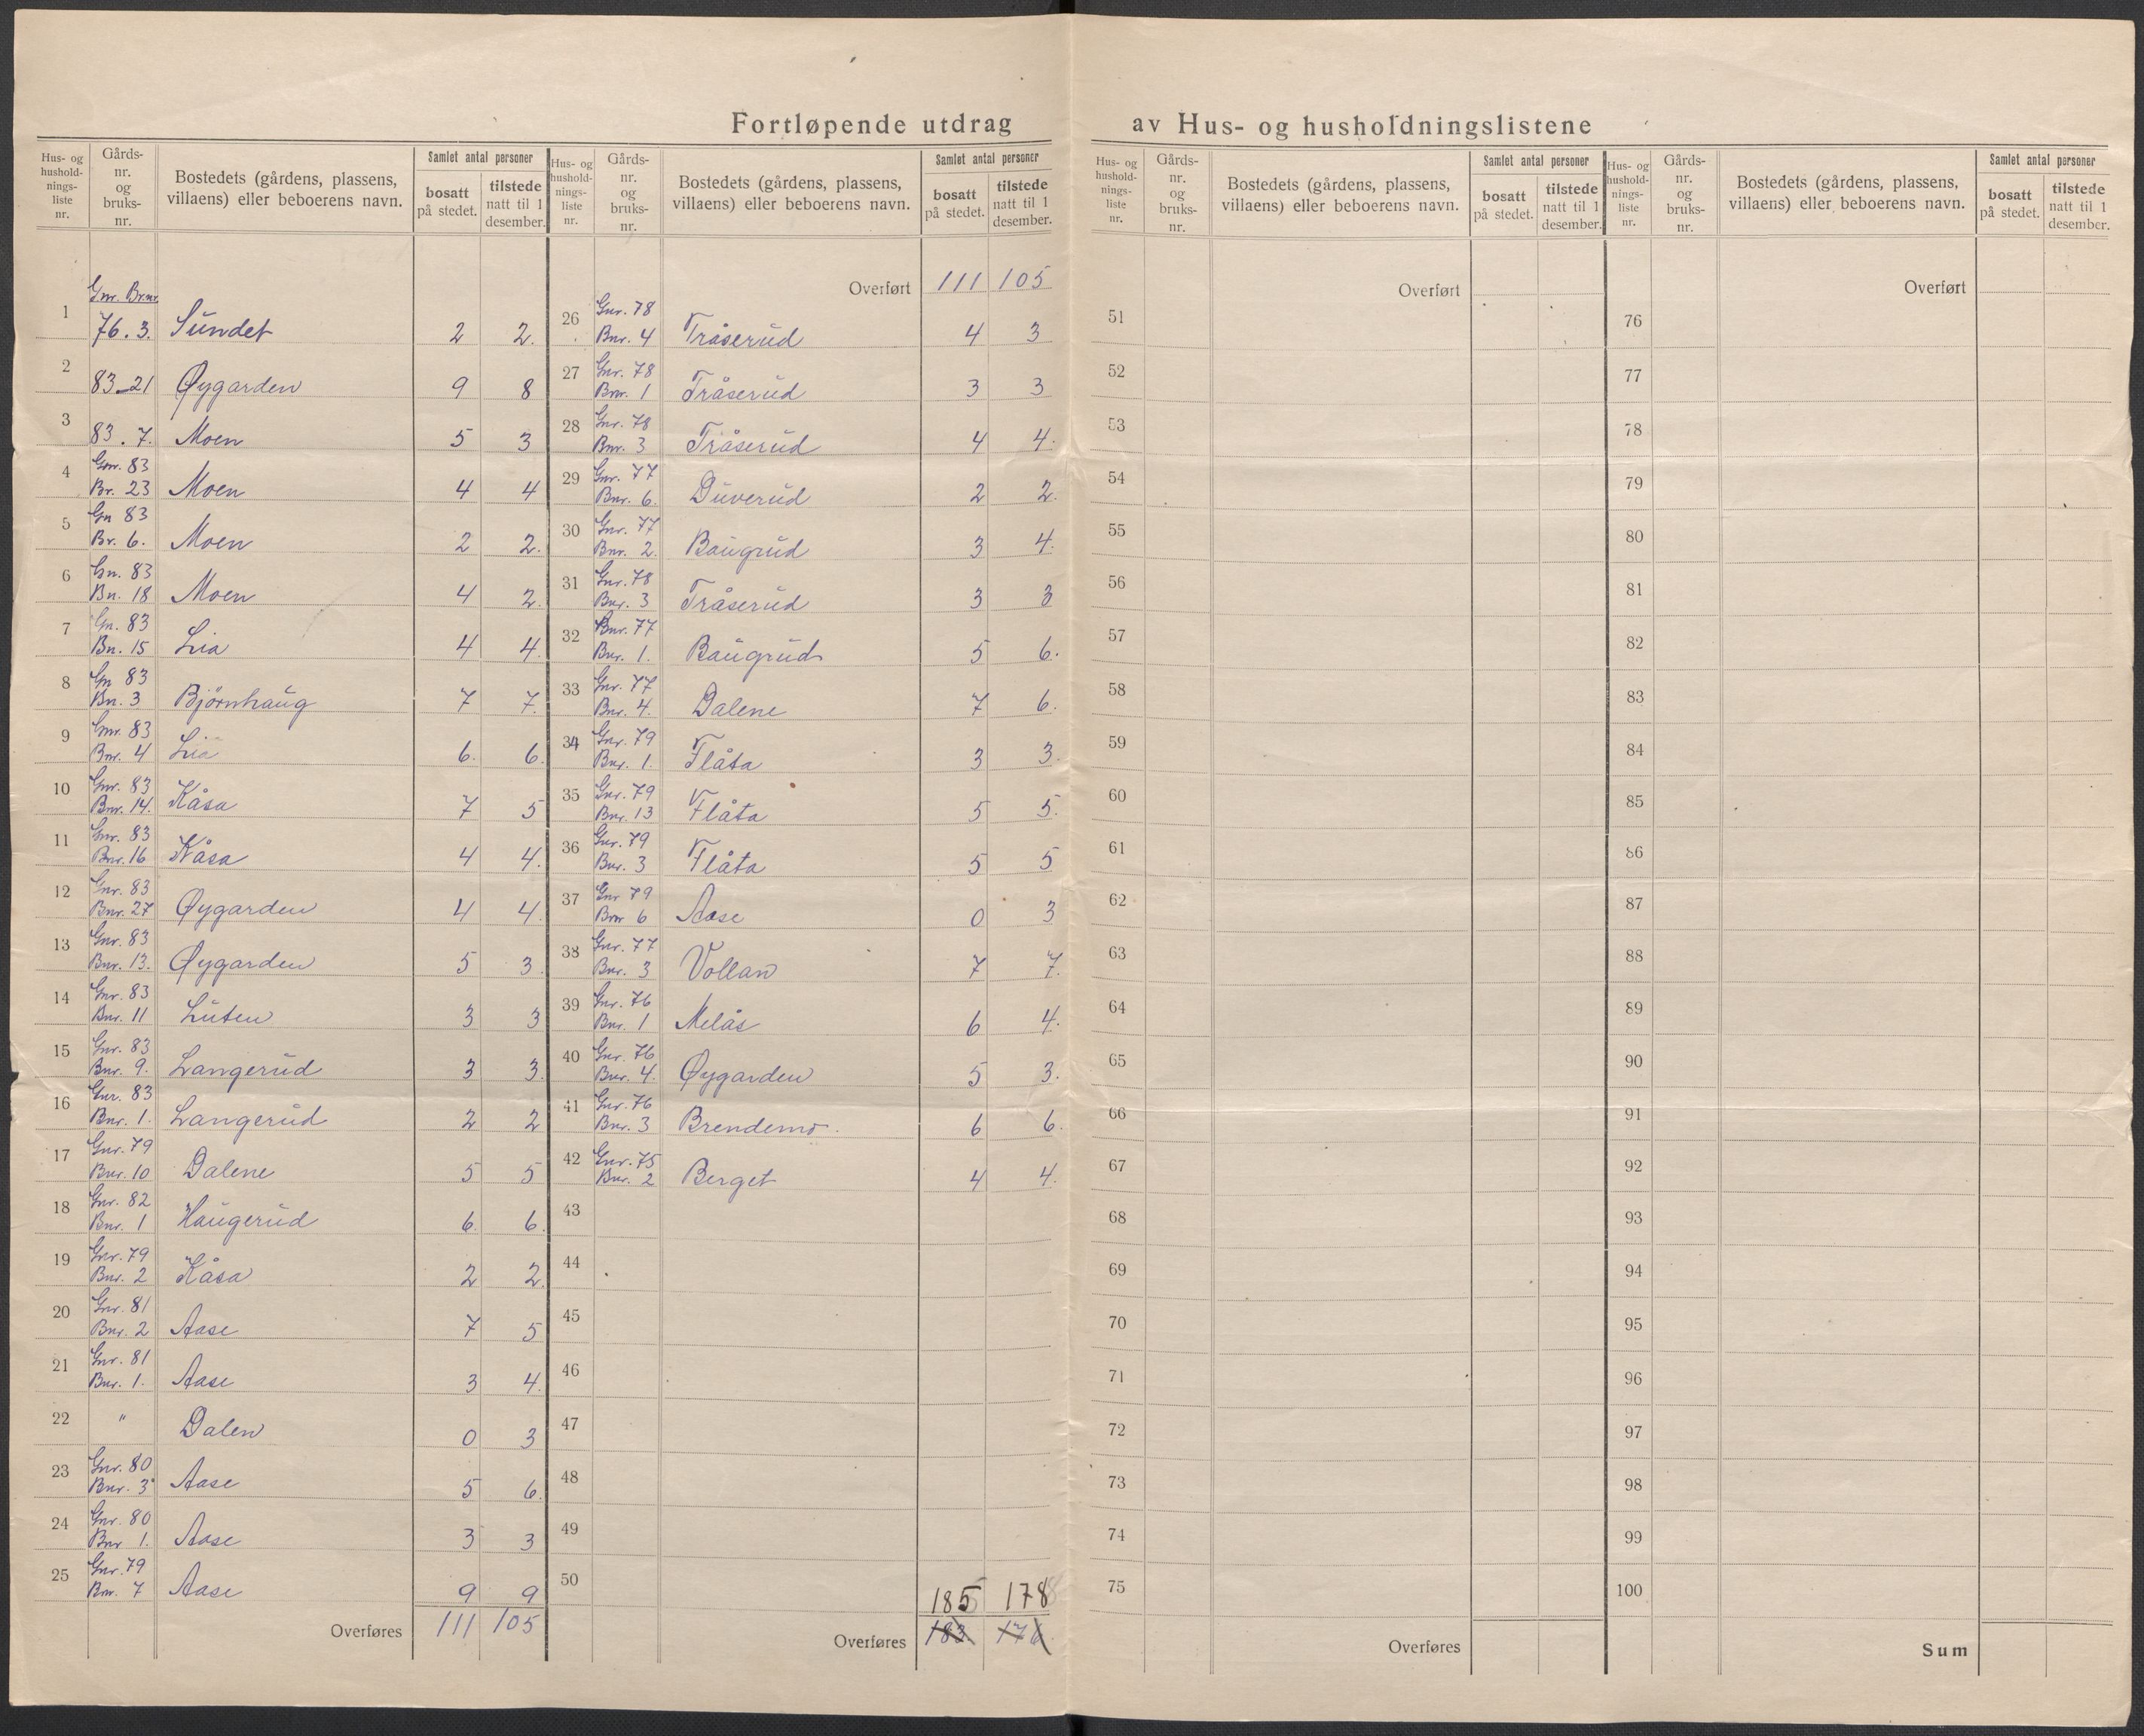 Fortløpende utdrag av Hus- og husholdningslistene
Hus- og hushold-nings-liste nr. | Gårds-nr. og bruks-nr. | Bostedets (gårdens, plassens, villaens) eller beboerens navn. | Samlet antal personer | bosatt på stedet. | tilstede natt til 1 desember.
Gnr. Bnr.
1 76. 3. Sundet 2 2.
2 83-21 Øygarden 9 8
3 83. 7. Moen 5 3
4 Gnr. 83 Br. 23 Moen 4 4
5 Gn 83 Br. 6. Moen 2 2.
6 Gn. 83 Bn. 18 Moen 4 2.
7 Gn. 83 Bn. 15 Lia 4 4
8 Gn 83 Bn. 3 Björnhaug 7 7.
9 Gnr. 83 Bnr. 4 Lia 6. 6.
10 Gnr. 83 Bnr. 14. Kåsa 7 5
11 Gnr. 83 Bnr. 16 Kåsa 4 4.
12 Gnr. 83 Bnr. 27 Øygarden 4 4.
13 Gnr. 83 Bnr. 13. Øygarden 5 3.
14 Gnr. 83 Bnr. 11 Luten 3 3
15 Gnr. 83 Bnr. 9. Langerud 3 3.
16 Gnr. 83 Bnr. 1. Langerud 2 2
17 Gnr. 79 Bnr. 10 Dalene 5 5
18 Gnr. 82 Bnr. 1 Haugerud 6. 6.
19 Gnr. 79 Bnr. 2 Kåsa 2 2.
20 Gnr. 81 Bnr. 2 Aase 7 5
21 Gnr. 81 Bnr. 1. Aase 3 4.
22 " Dalen 0 3
23 Gnr. 80 Bnr. 3 Aase 5 6.
24 Gnr. 80 Bnr 1. Aase 3 3
25 Gnr. 79 Bnr. 7 Aase 9 9
Overføres 111 105
Hus- og hushold-nings-liste nr. | Gårds-nr. og bruks-nr. | Bostedets (gårdens, plassens, villaens) eller beboerens navn. | Samlet antal personer | bosatt på stedet. | tilstede natt til 1 desember.
Overført 111 105
26 Gnr. 78 Bnr. 4 Tråserud 4 3
27 Gnr. 78 Bnr. 1 Tråserud 3 3
28 Gnr. 78 Bnr. 3 Tråserud 4 4.
29 Gnr. 77 Bnr. 6. Duverud 2 2.
30 Gnr. 77 Bnr. 2. Baugrud 3 4.
31 Gnr. 78 Bnr. 3 Tråserud 3 3
32 Bnr. 77 Bnr. 1. Baugrud 5 6.
33 Gnr. 77 Bnr. 4. Dalene 7 6.
34 Gnr. 79 Bnr. 1. Flåta 3 3.
35 Gnr. 79 Bnr. 13 Flåta 5 5.
36 Gnr. 79 Bnr. 3 Flåta 5 5
37 Gnr 79 Bnr 6 Aase 0 3
38 Gnr. 77 Bnr. 3 Vollan 7 7.
39 Gnr. 76 Bnr. 1 Melås 6 4.
40 Gnr. 76 Bnr. 4. Øygarden 5 3.
41 Gnr. 76 Bnr. 3 Brendemo. 6 6.
42 Gnr. 75 Bnr. 2 Berget 4 4.
43
44
45
46
47
48
49
50
185 178
Overføres 183 176.
Hus- og hushold-nings-liste nr. | Gårds-nr. og bruks-nr. | Bostedets (gårdens, plassens, villaens) eller beboerens navn. | Samlet antal personer | bosatt på stedet. | tilstede natt til 1 desember.
Overført
51
52
53
54
55
56
57
58
59
60
61
62
63
64
65
66
67
68
69
70
71
72
73
74
75
Overføres
Hus- og hushold-nings-liste nr. | Gårds-nr. og bruks-nr. | Bostedets (gårdens, plassens, villaens) eller beboerens navn. | Samlet antal personer | bosatt på stedet. | tilstede natt til 1 desember.
Overført
76
77
78
79
80
81
82
83
84
85
86
87
88
89
90
91
92
93
94
95
96
97
98
99
100
Sum